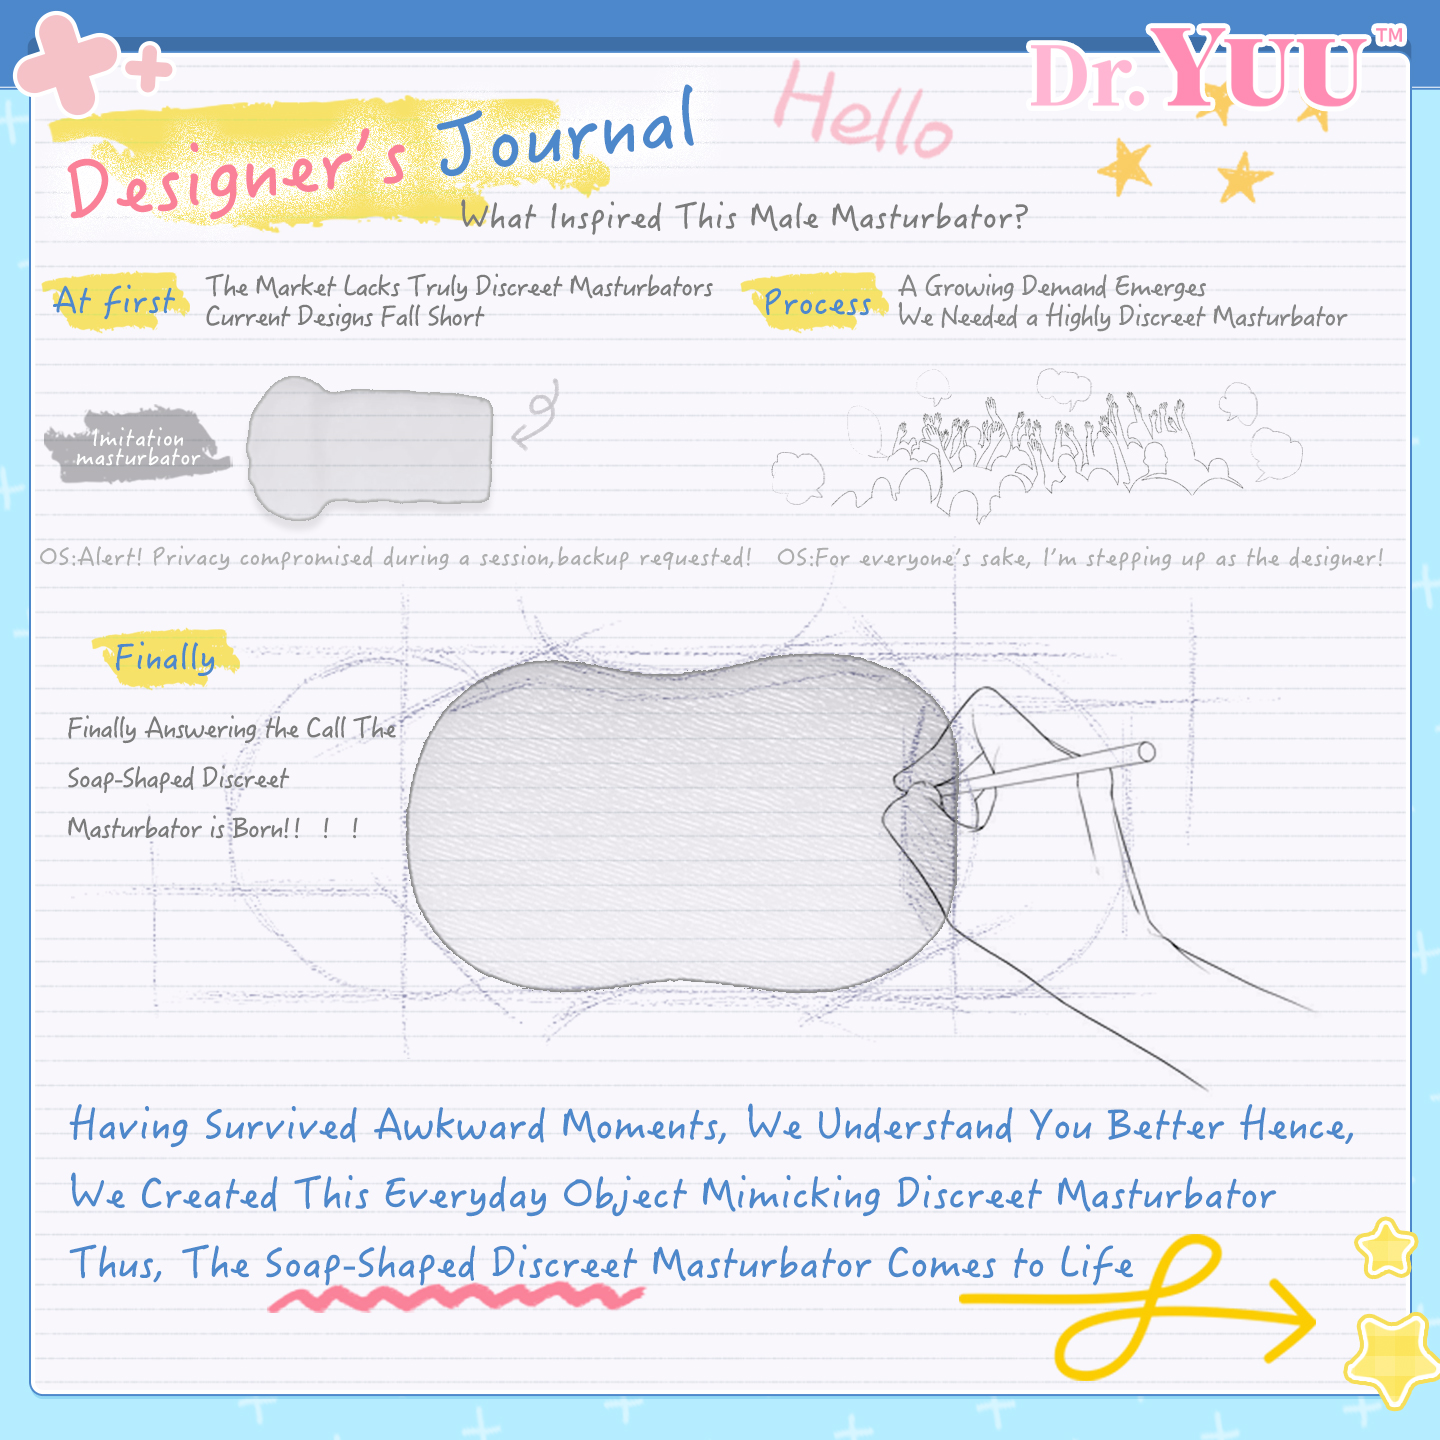 Dr.YUU™
Hello
Designer's Journal
What Inspired This Male Masturbator?
At first
The Market Lacks Truly Discreet Masturbators
Current Designs Fall Short
Process
A Growing Demand Emerges
We Needed a Highly Discreet Masturbator
Imitation
masturbator
OS:Alert! Privacy compromised during a session,backup requested!
OS:For everyone's sake, I'm stepping up as the designer!
Finally
Finally Answering the Call The
Soap-Shaped Discreet
Masturbator is Born!! ! !
Having Survived Awkward Moments, We Understand You Better Hence,
We Created This Everyday Object Mimicking Discreet Masturbator
Thus, The Soap-Shaped Discreet Masturbator Comes to Life